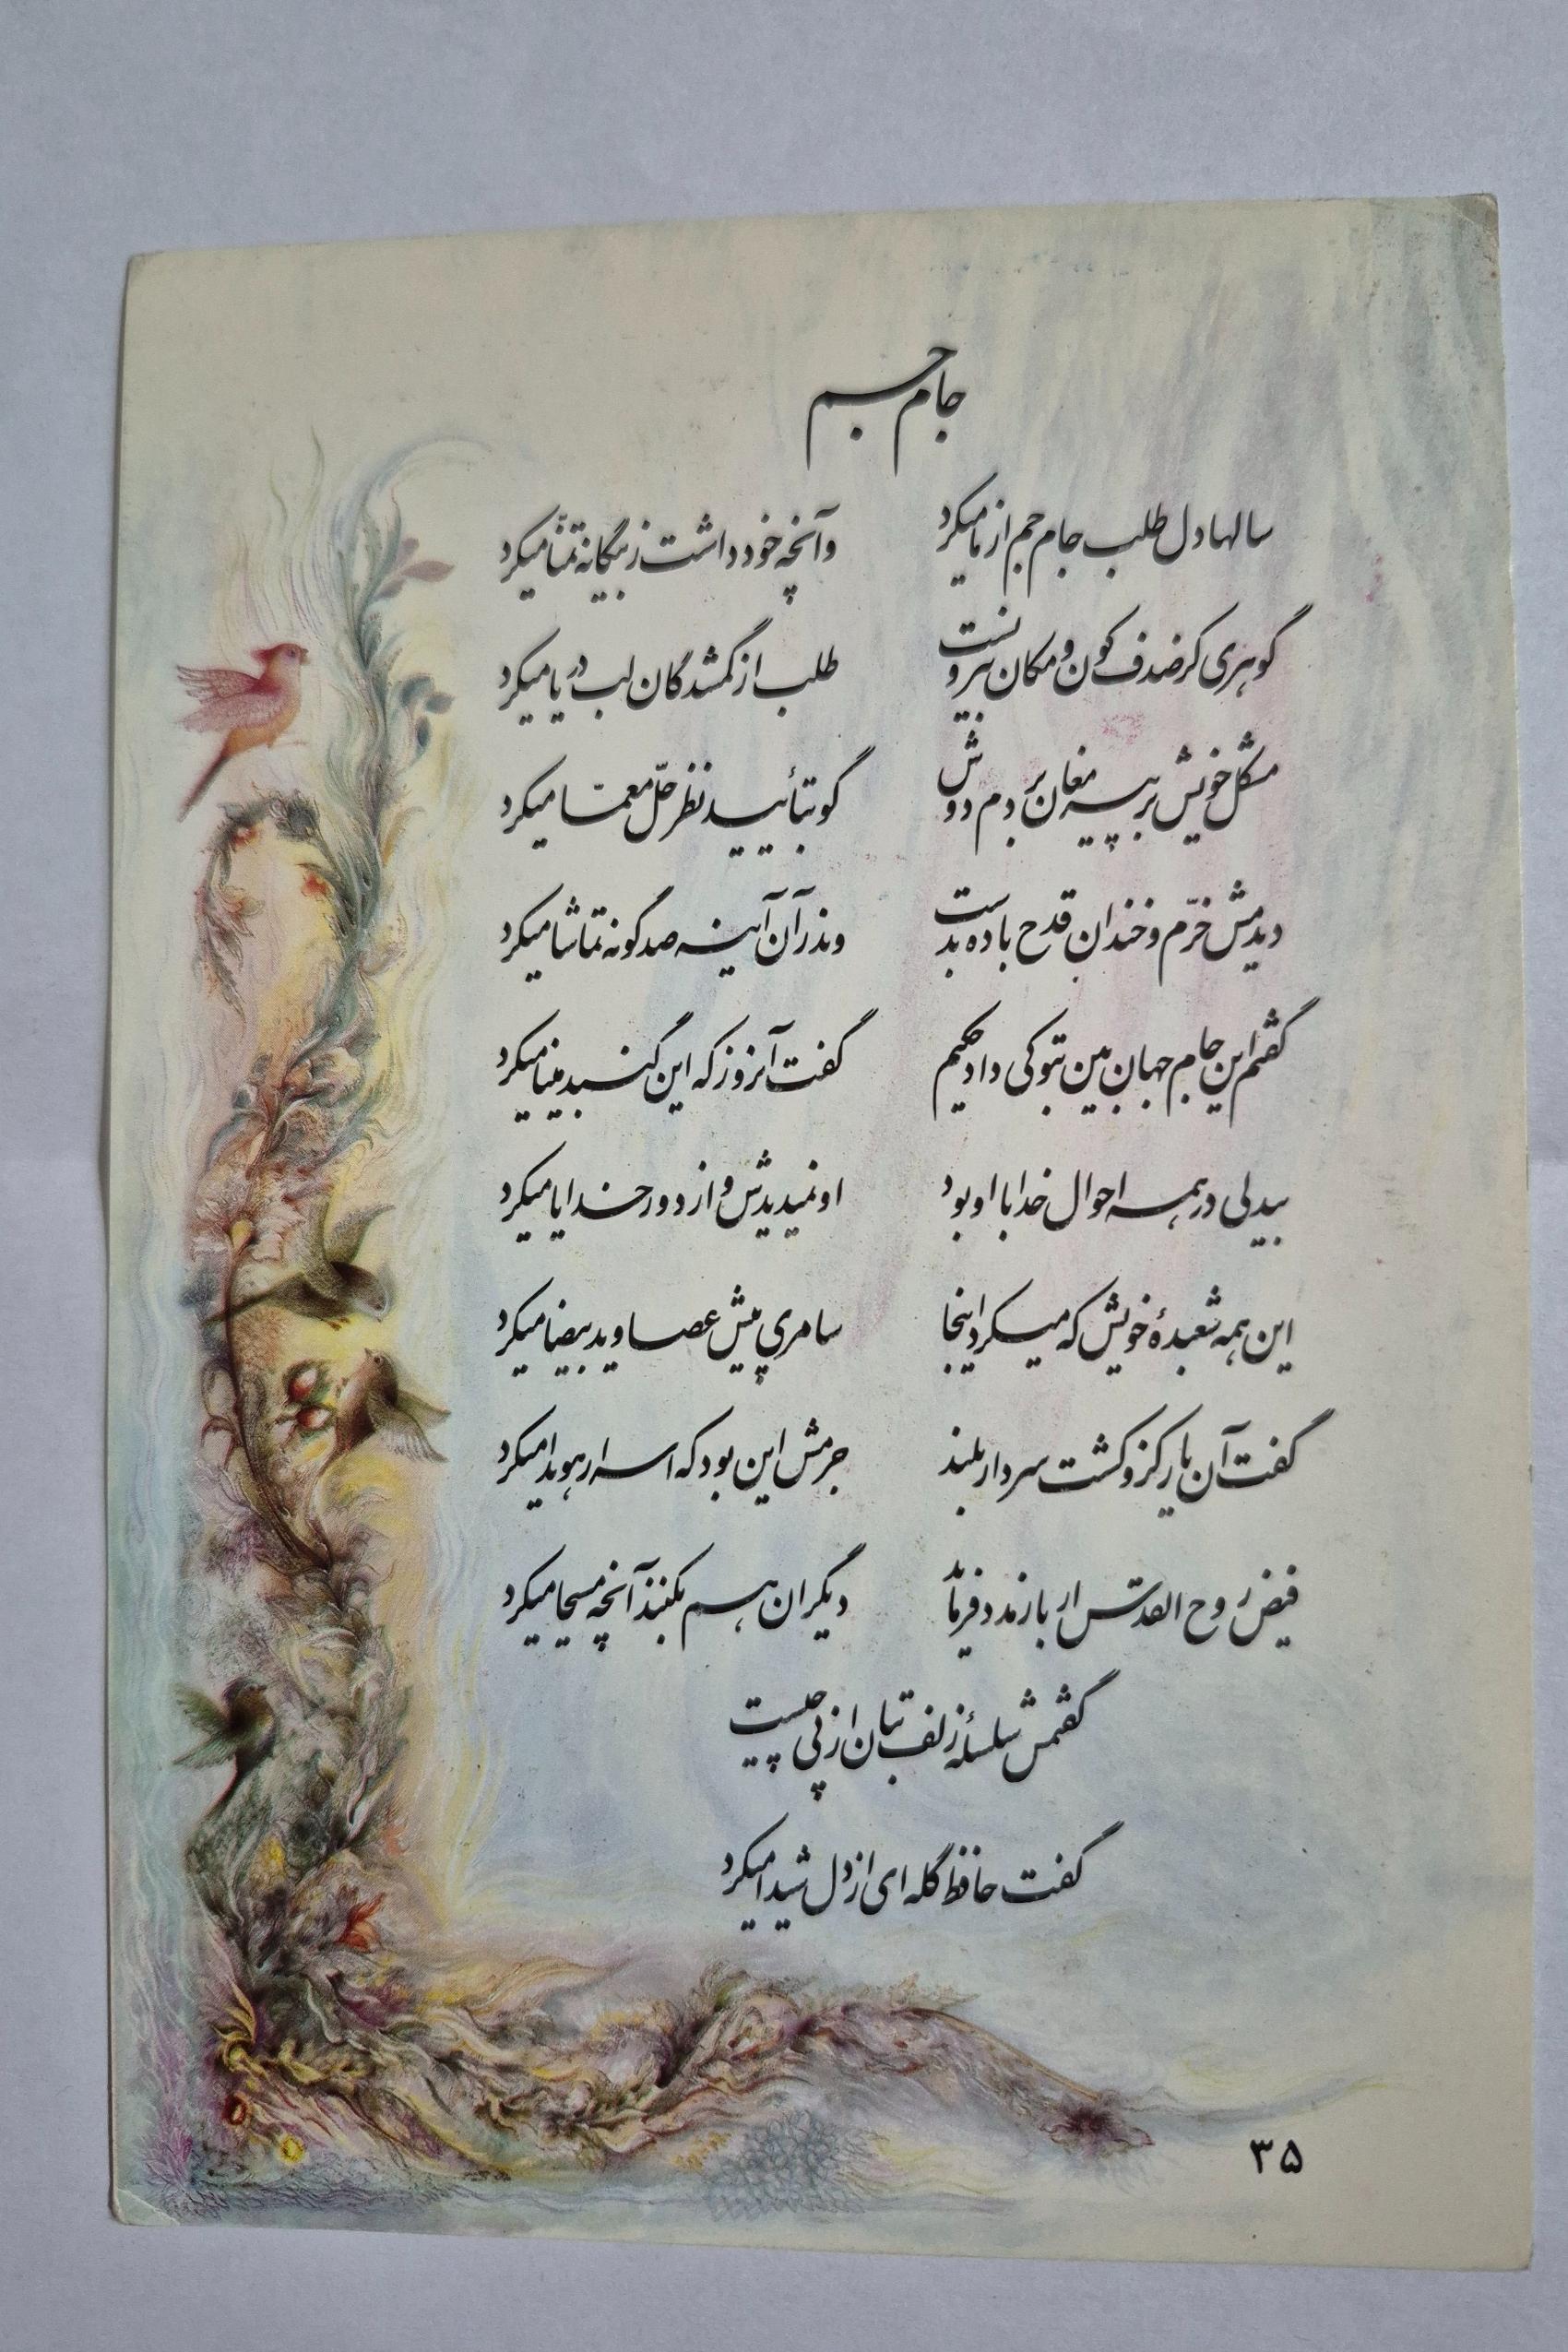 جام جم
سالها دل طلب جام جم از ما میکرد وآنچه خود داشت ز بیگانه تمنّا میکرد
گوهری کز صدف کون و مکان بیرونست طلب از گمشدگان لب دریا میکرد
مشکل خویش بر پیر مغان بردم دوش گو بتأیید نظر حلّ معمّا میکرد
دیدمش خرّم و خندان قدح باده بدست وندر آن آینه صد گونه تماشا میکرد
گفتم این جام جهان بین بتو کی داد حکیم گفت آنروز که این گنبد مینا میکرد
بیدلی در همه احوال خدا با او بود او نمیدیدش و از دور خدایا میکرد
این همه شعبدهٔ خویش که میکرد اینجا سامری پیش عصا و ید بیضا میکرد
گفت آن یار کزو گشت سر دار بلند جرمش این بود که اسرار هویدا میکرد
فیض روح القدس ار باز مدد فرماید دیگران هم بکنند آنچه مسیحا میکرد
گفتمش سلسلهٔ زلف بتان از پی چیست
گفت حافظ گله ای از دل شیدا میکرد
۳۵